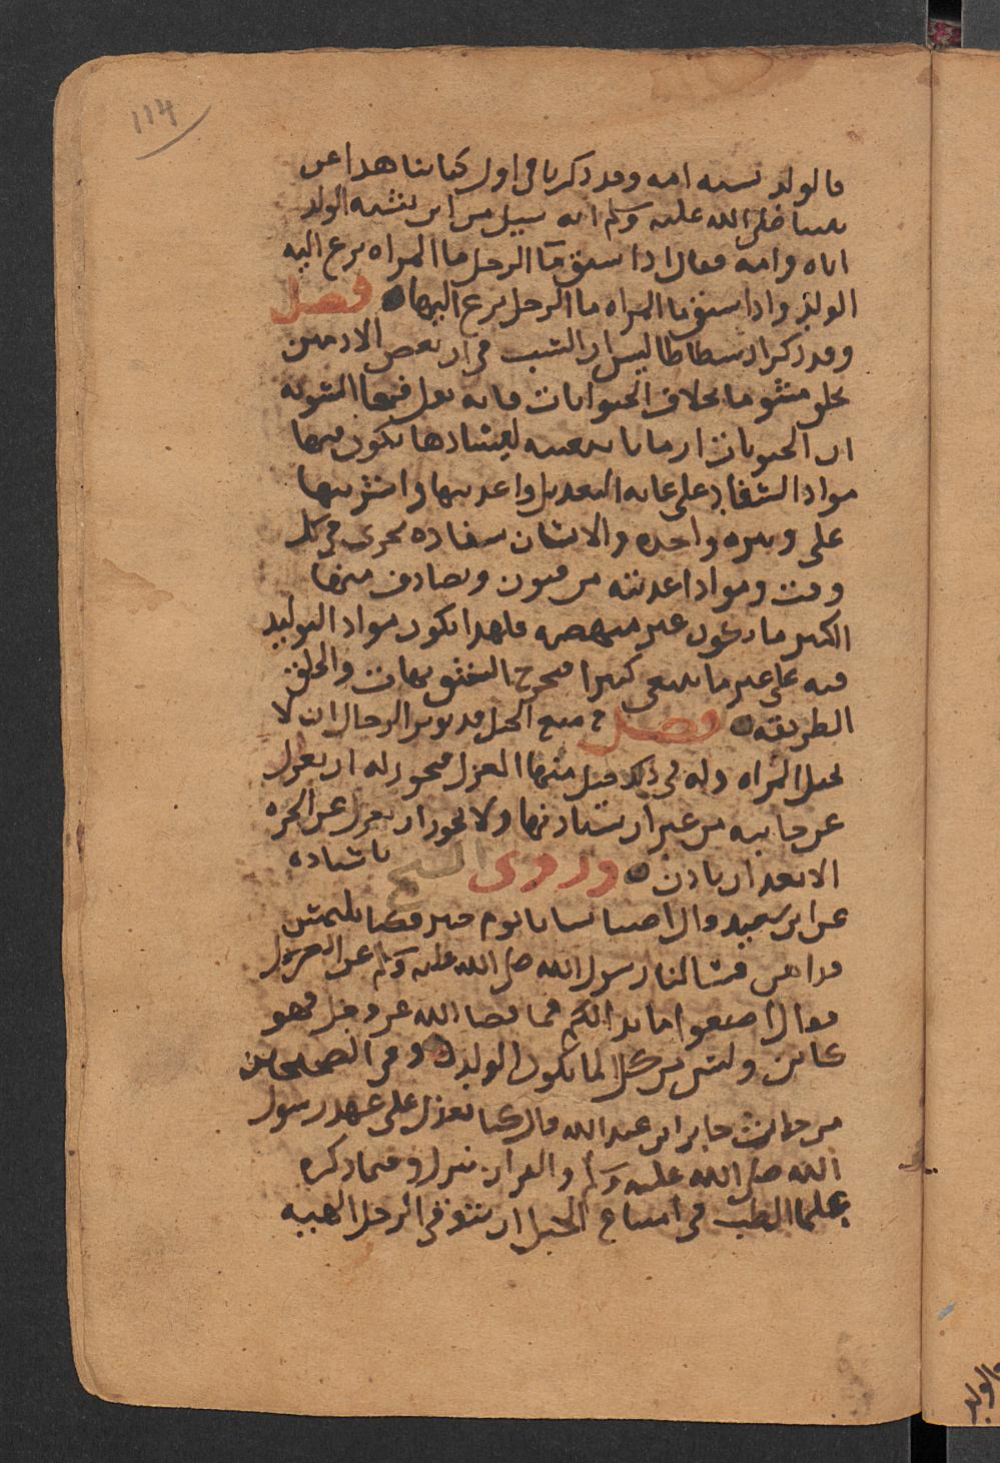 114
فالولد نسبه امه وقد ذكرنا في اول كتابنا هذا عن
نبينا صلى الله عليه وسلم انه سيل من اين يشبه الولد
اباه وامه فقال اذا سبق ما الرجل ما المراه نزع اليه
الولد واذا سبق ما المراه ما الرجل نزع اليها فصل
وقد ذكر ارسطاطاليس ان السبب في ان بعض الادميين
يخلق مشوها بخلاف الحيوانات فانه يقل فيها التشويه
ان الحيوانات ازمانا معينه لفسادها تكون فيها
مواد السفاد على غايه التعديل واغذيتها واشربتها
على وتيره واحده والانسان سفاده يجري في كل
وقت ومواد اغذيته من فنون وتصادف منها
الكثير ما دغون غير منهضمه فلهذا تكون مواد التوليد
فيه على غير ما ينبغي كثيرا فتخرج التشويهات والخلق
الطريفه فصل في منع الحبل قد يوثر الرجال ان لا
تحبل المراه وله في ذلك حيل منها العزل فيجوز له ان يعزل
عن جاريته من غير ان يستاذنها ولا يجوز ان يعزل عن الحره
الا بعد ان ياذن وروى الشيخ باسناده
عن ابي سعيد قال اصبنا سبايا يوم حنين فكنا نلتمس
فداهن فسالنا رسول الله صلى الله عليه وسلم عن العزل
فقال اصنعوا ما بدا لكم فما قضا الله عز وجل فهو
كاين وليس من كل الما يكون الولد وفي الصحيحين
من حديث جابر ابن عبد الله قال كنا نعزل على عهد رسول
الله صلى الله عليه وسلم والقران ينزل ومما ذكره
علما الطب في امتناع الحبل ان يتوقى الرجل الهيبه
والولد